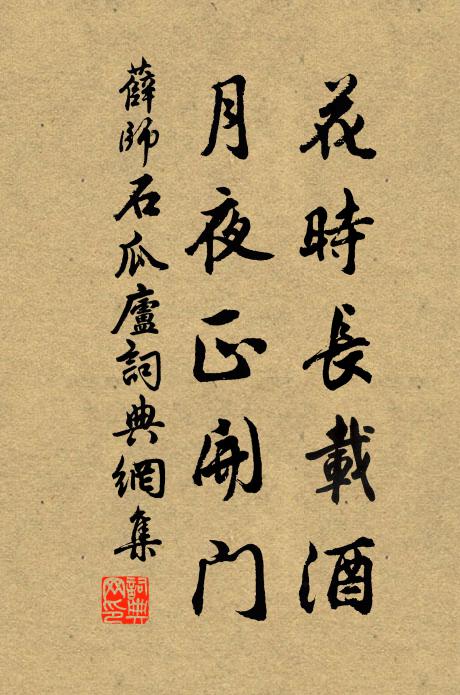 花時長載酒
月夜正開門
薛師石瓜廬詞典網集
詞典網印